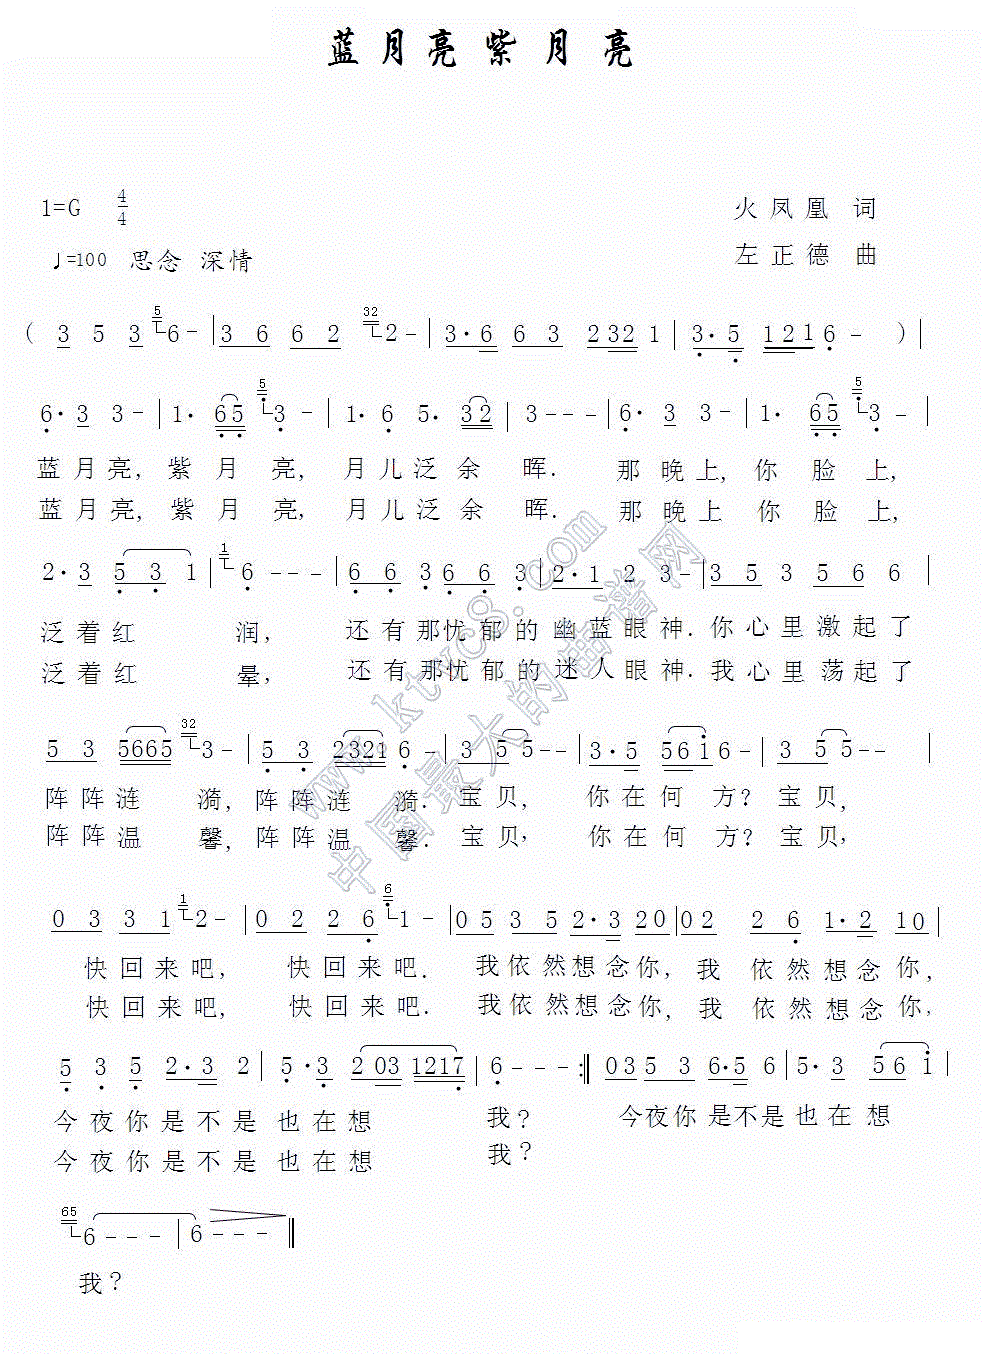 蓝月亮紫月亮
1=G 4/4 火凤凰 词
♩=100 思念 深情 左正德 曲
( 3 5 3 5 6 - | 3 6 6 2 32 2 - | 3· 6 6 3 2 321 | 3· 5 1216 - ) |
6· 3 3 - | 1· 65 5 3 - | 1· 6 5· 32 | 3 - - - | 6· 3 3 - | 1· 65 5 3 - |
蓝月亮,紫月亮,月儿泛余晖.那晚上,你脸上,
蓝月亮,紫月亮,月儿泛余晖.那晚上你脸上,
2· 3 5 3 1 | 1 6 - - - | 6 6 3 6 6 3 | 2· 1 2 3 - | 3 5 3 5 6 6 |
泛着红润,还有那忧郁的幽蓝眼神.你心里激起了
泛着红晕,还有那忧郁的迷人眼神.我心里荡起了
5 3 5665 32 3 - | 5 3 2321 6 - | 3 5 5 - - | 3· 5 5616 - | 3 5 5 - - |
阵阵涟漪,阵阵涟漪.宝贝,你在何方?宝贝,
阵阵温馨,阵阵温馨.宝贝,你在何方?宝贝,
0 3 3 1 1 2 - | 0 2 2 6 6 1 - | 0 5 3 5 2· 3 20 | 02 2 6 1· 2 10 |
快回来吧,快回来吧.我依然想念你,我依然想念你,
快回来吧,快回来吧.我依然想念你,我依然想念你,
5 3 5 2· 3 2 | 5· 3 2 03 1217 | 6 - - - :‖ 0 3 5 3 6· 5 6 | 5· 3 5 6 1 |
今夜你是不是也在想我?今夜你是不是也在想
今夜你是不是也在想我?
65 6 - - - | 6 - - - ‖
我?
www.ktvc8.com
中国最大的曲谱网